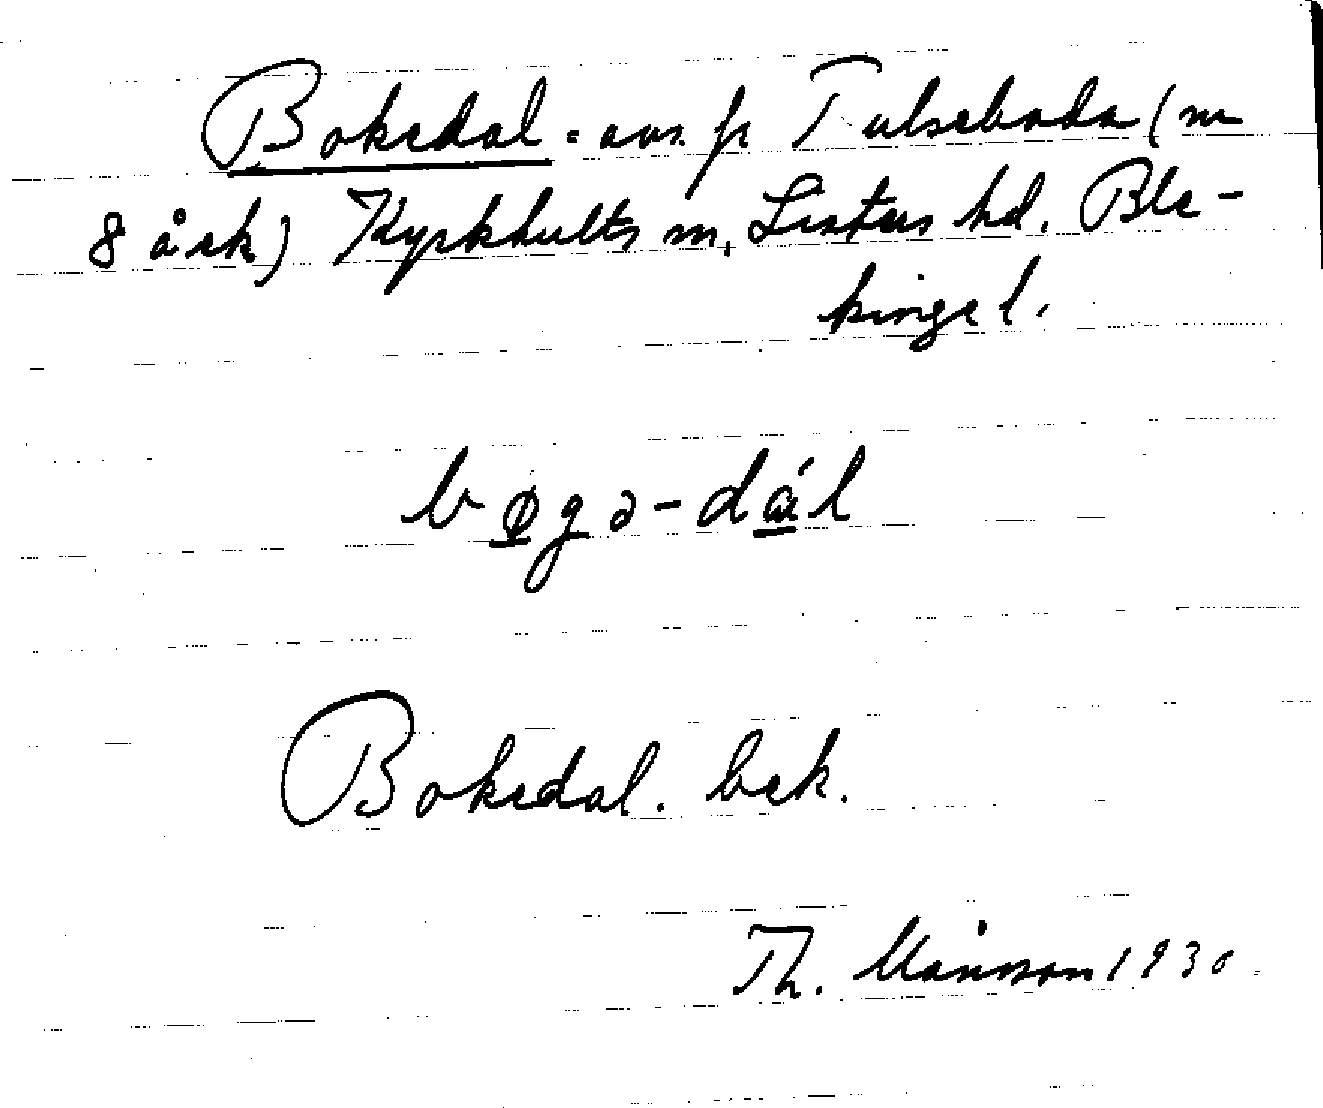 Bokedal - avs. fr Tulseboda (m
8 år k) Kyrkhults sn, Listers hd. Ble-
kinge l.
bøgə-dál
Bokedal. bek.
Th. Månsson 1930